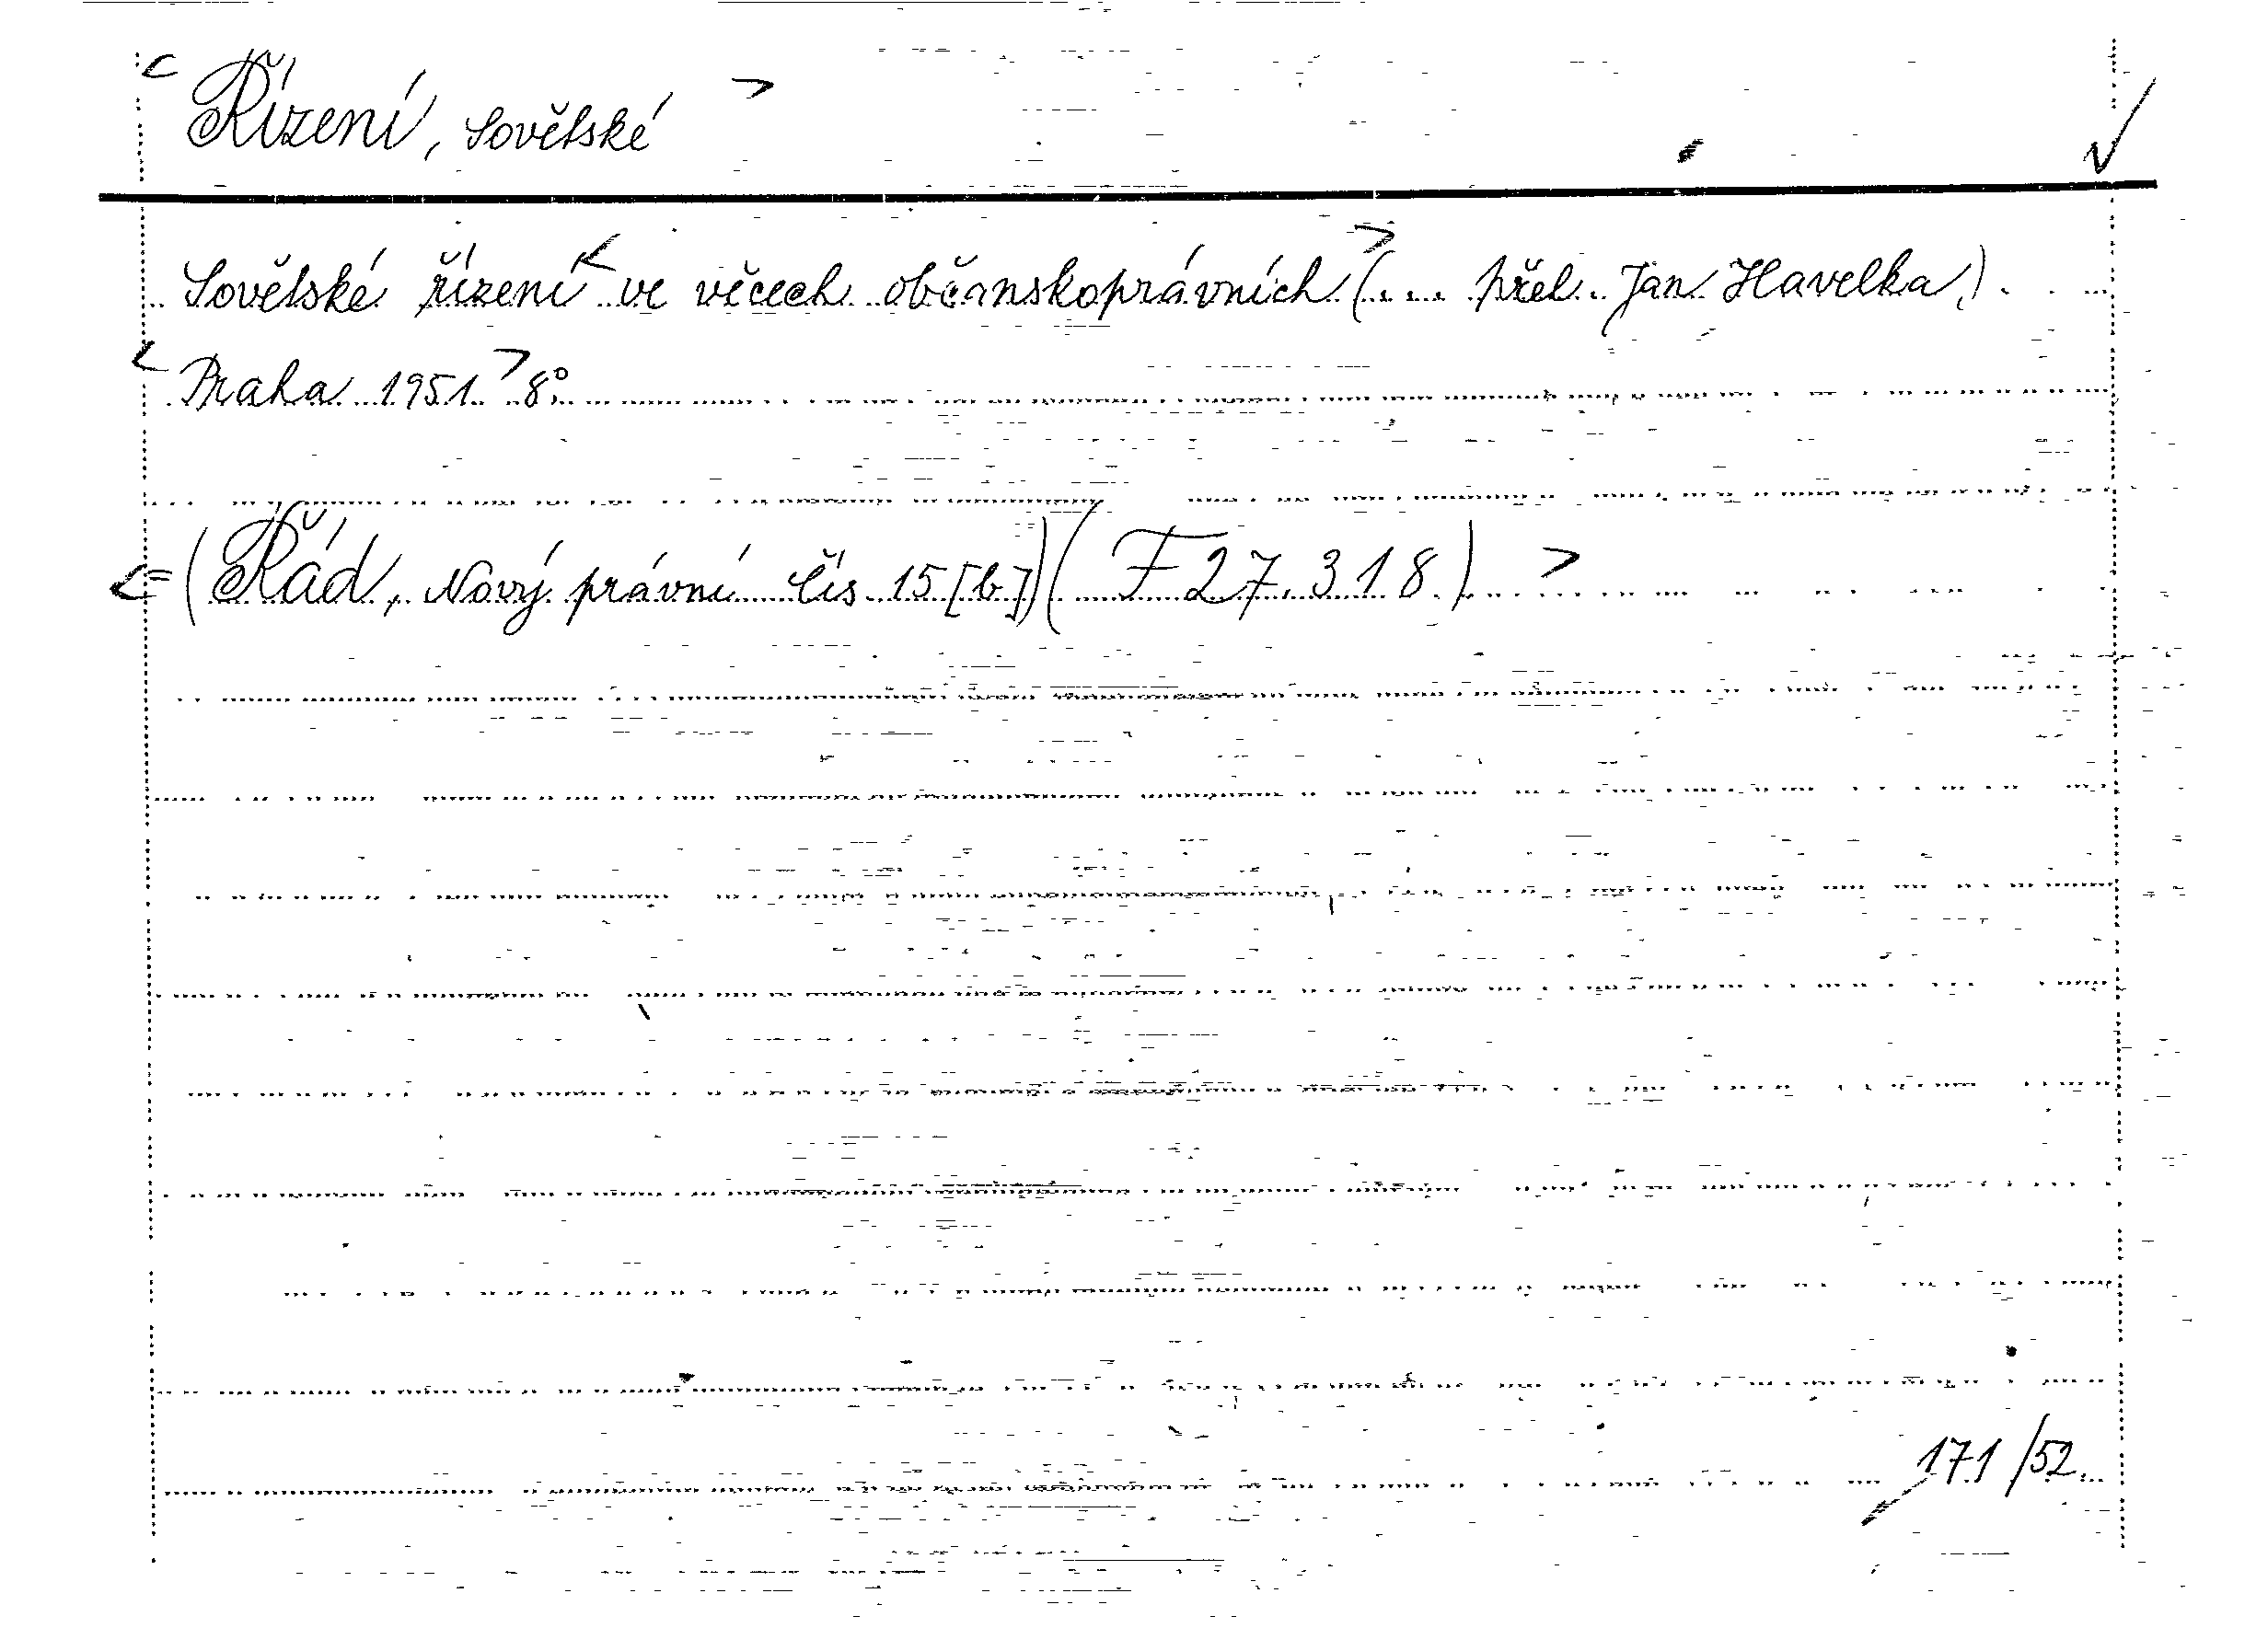 < Řízení, Sovětské >
Sovětské řízení < ve věcech občanskoprávních > (... přel. Jan Havelka).
< Praha 1951 > 8°
<= (Řád, Nový právní čís. 15 [b]) (F 27.318.) >
171/52